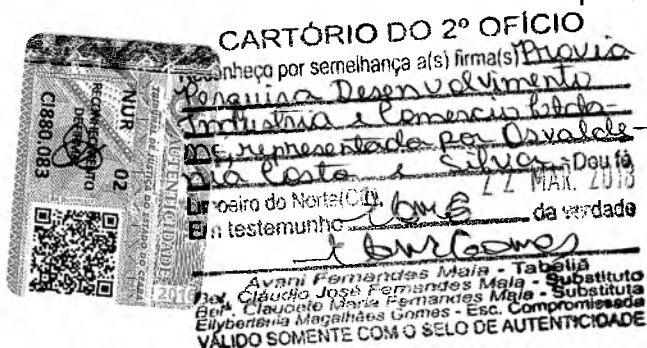 CARTÓRIO DO 2º OFÍCIO
Reconheço por semelhança a(s) firma(s) Provia
Pesquisa Desenvolvimento
Industria e Comercio Ltda-
ME, representada por Osvalde-
nia Costa e Silva. Dou fé
Limoeiro do Norte(CE), 22 MAR. 2018
Em testemunho da verdade
Avani Fernandes Maia - Tabeliã
Bel. Cláudio José Fernandes Maia - Substituto
Belª. Clauciete Maria Fernandes Maia - Substituta
Ellybertenia Magalhães Gomes - Esc. Compromissada
VÁLIDO SOMENTE COM O SELO DE AUTENTICIDADE
AUTENTICIDADE
NUR 02
RECONHECIMENTO
DE FIRMA
CI880.083